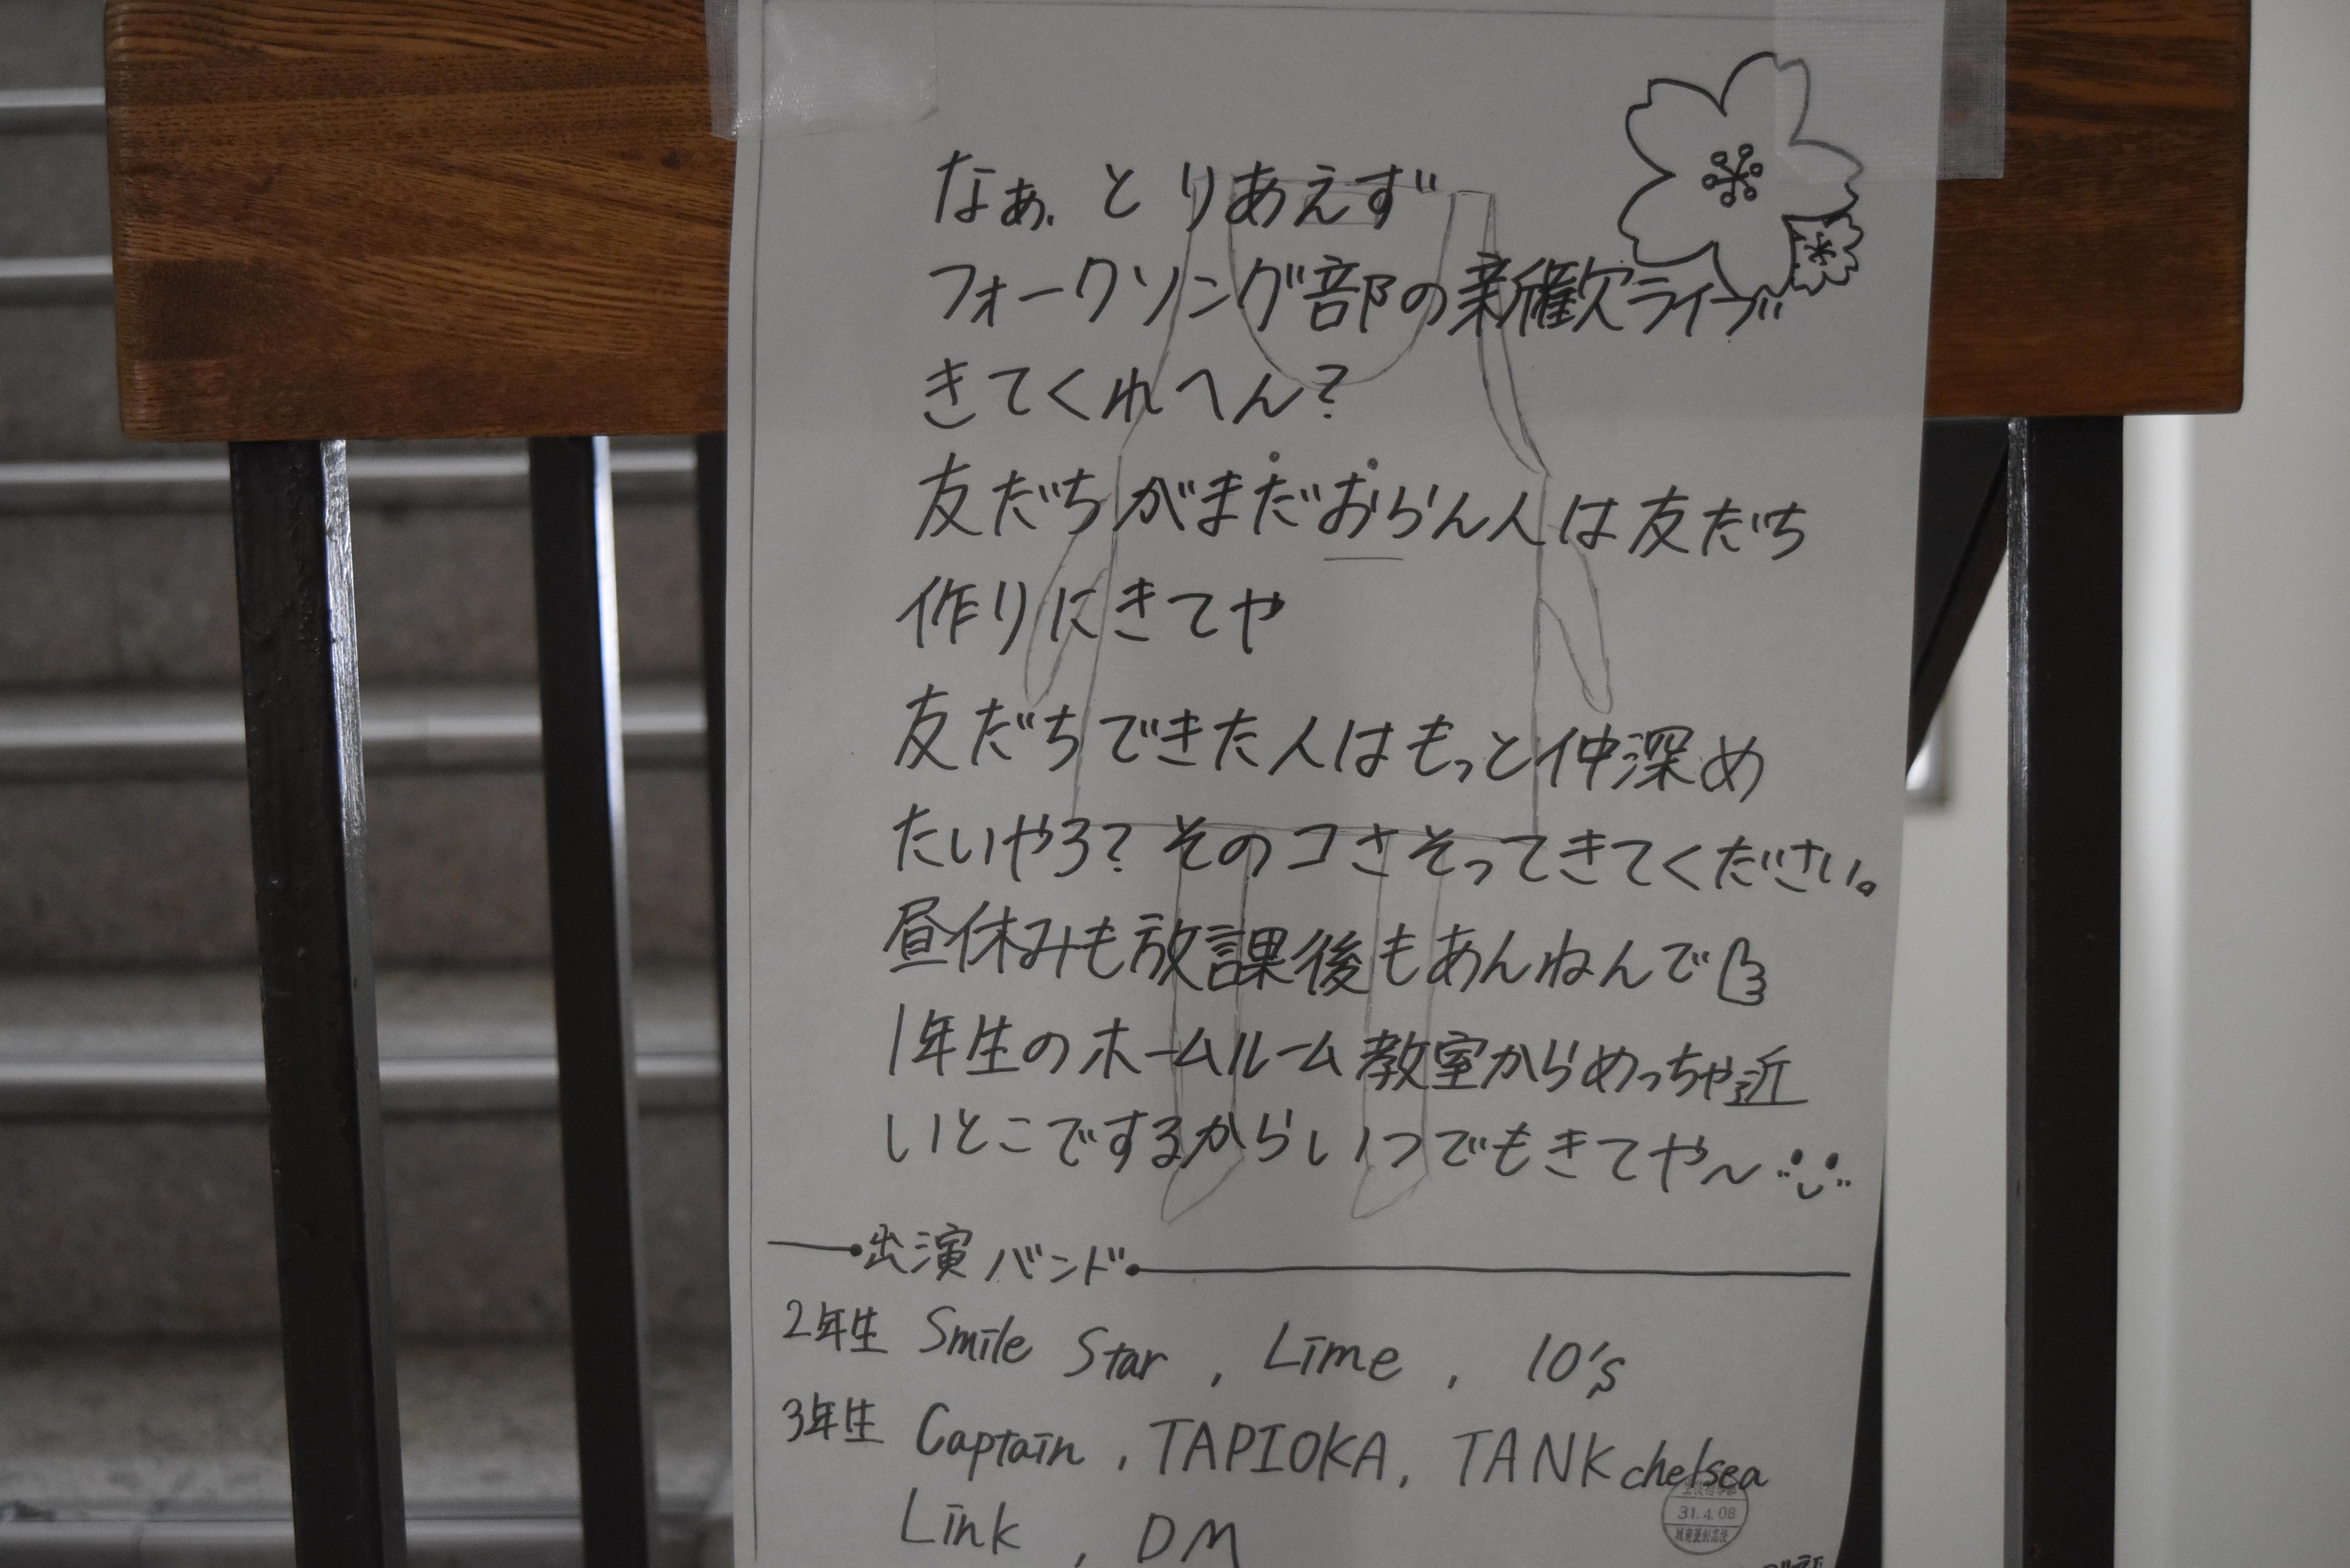 なぁ、とりあえず
フォークソング部の新歓ライブ
きてくれへん?
友だちがまだおらん人は友だち
作りにきてや
友だちできた人はもっと仲深め
たいやろ? そのコさそってきてください。
昼休みも放課後もあんねんで
1年生のホームルーム教室からめっちゃ近
いとこでするからいつでもきてや〜
出演バンド
2年生 Smile Star, Lime, 10's
3年生 Captain, TAPIOKA, TANK chelsea
Link, DM
31.4.08